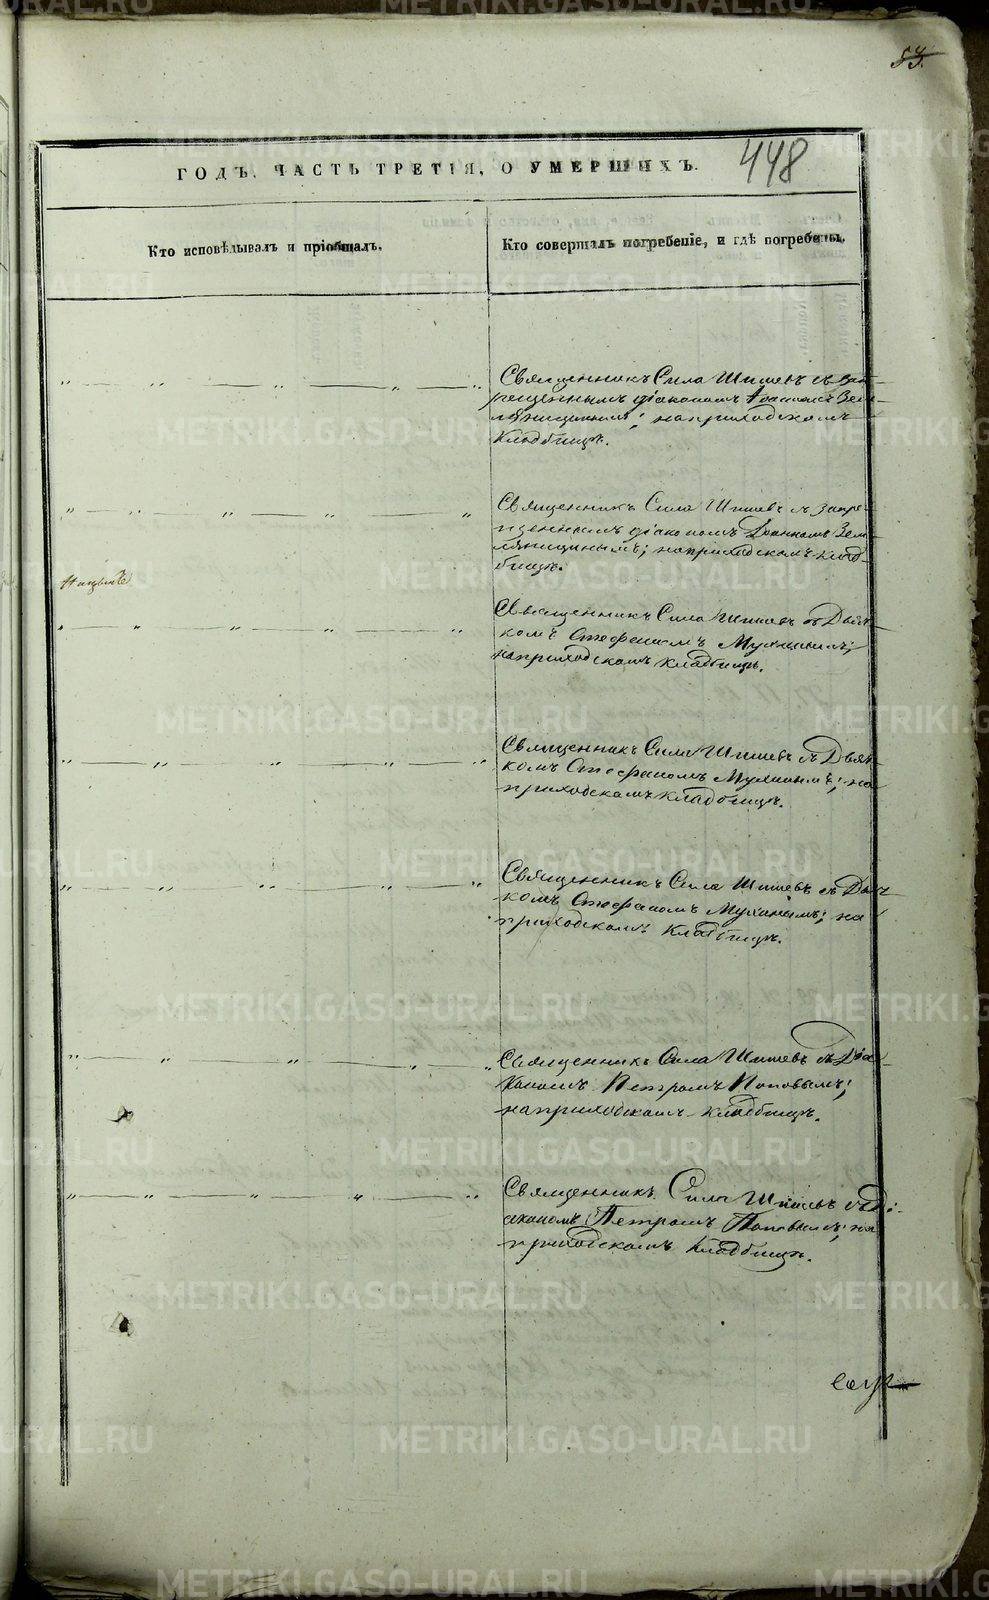 53.
448
ГОДЪ, ЧАСТЬ ТРЕТІЯ, О УМЕРШИХЪ.
Кто исповѣдывалъ и пріобщалъ.
Кто совершалъ погребеніе, и гдѣ погребены.
Священникъ Сила Шишевъ съ зап-
рещеннымъ діакономъ Іоанномъ Зем-
ляницынымъ; на приходскомъ
кладбищѣ.
Священникъ Сила Шишевъ съ запре-
щеннымъ діакономъ Іоанномъ Зем-
ляницынымъ; на приходскомъ клад-
бищѣ.
Священникъ Сила Шишевъ съ Дьяч-
комъ Стефаномъ
на приходскомъ кладбищѣ.
Священникъ Сила Шишевъ съ Дьяч-
комъ Стефаномъ на
приходскомъ кладбищѣ.
Священникъ Сила Шишевъ съ Дьяч-
комъ Стефаномъ на
приходскомъ кладбищѣ.
Священникъ Сила Шишевъ съ Діа-
кономъ Петромъ Поповымъ;
на приходскомъ кладбищѣ.
Священникъ Сила Шишевъ съ Ді-
акономъ Петромъ Поповымъ; на
приходскомъ кладбищѣ.
METRIKI.GASO-URAL.RU